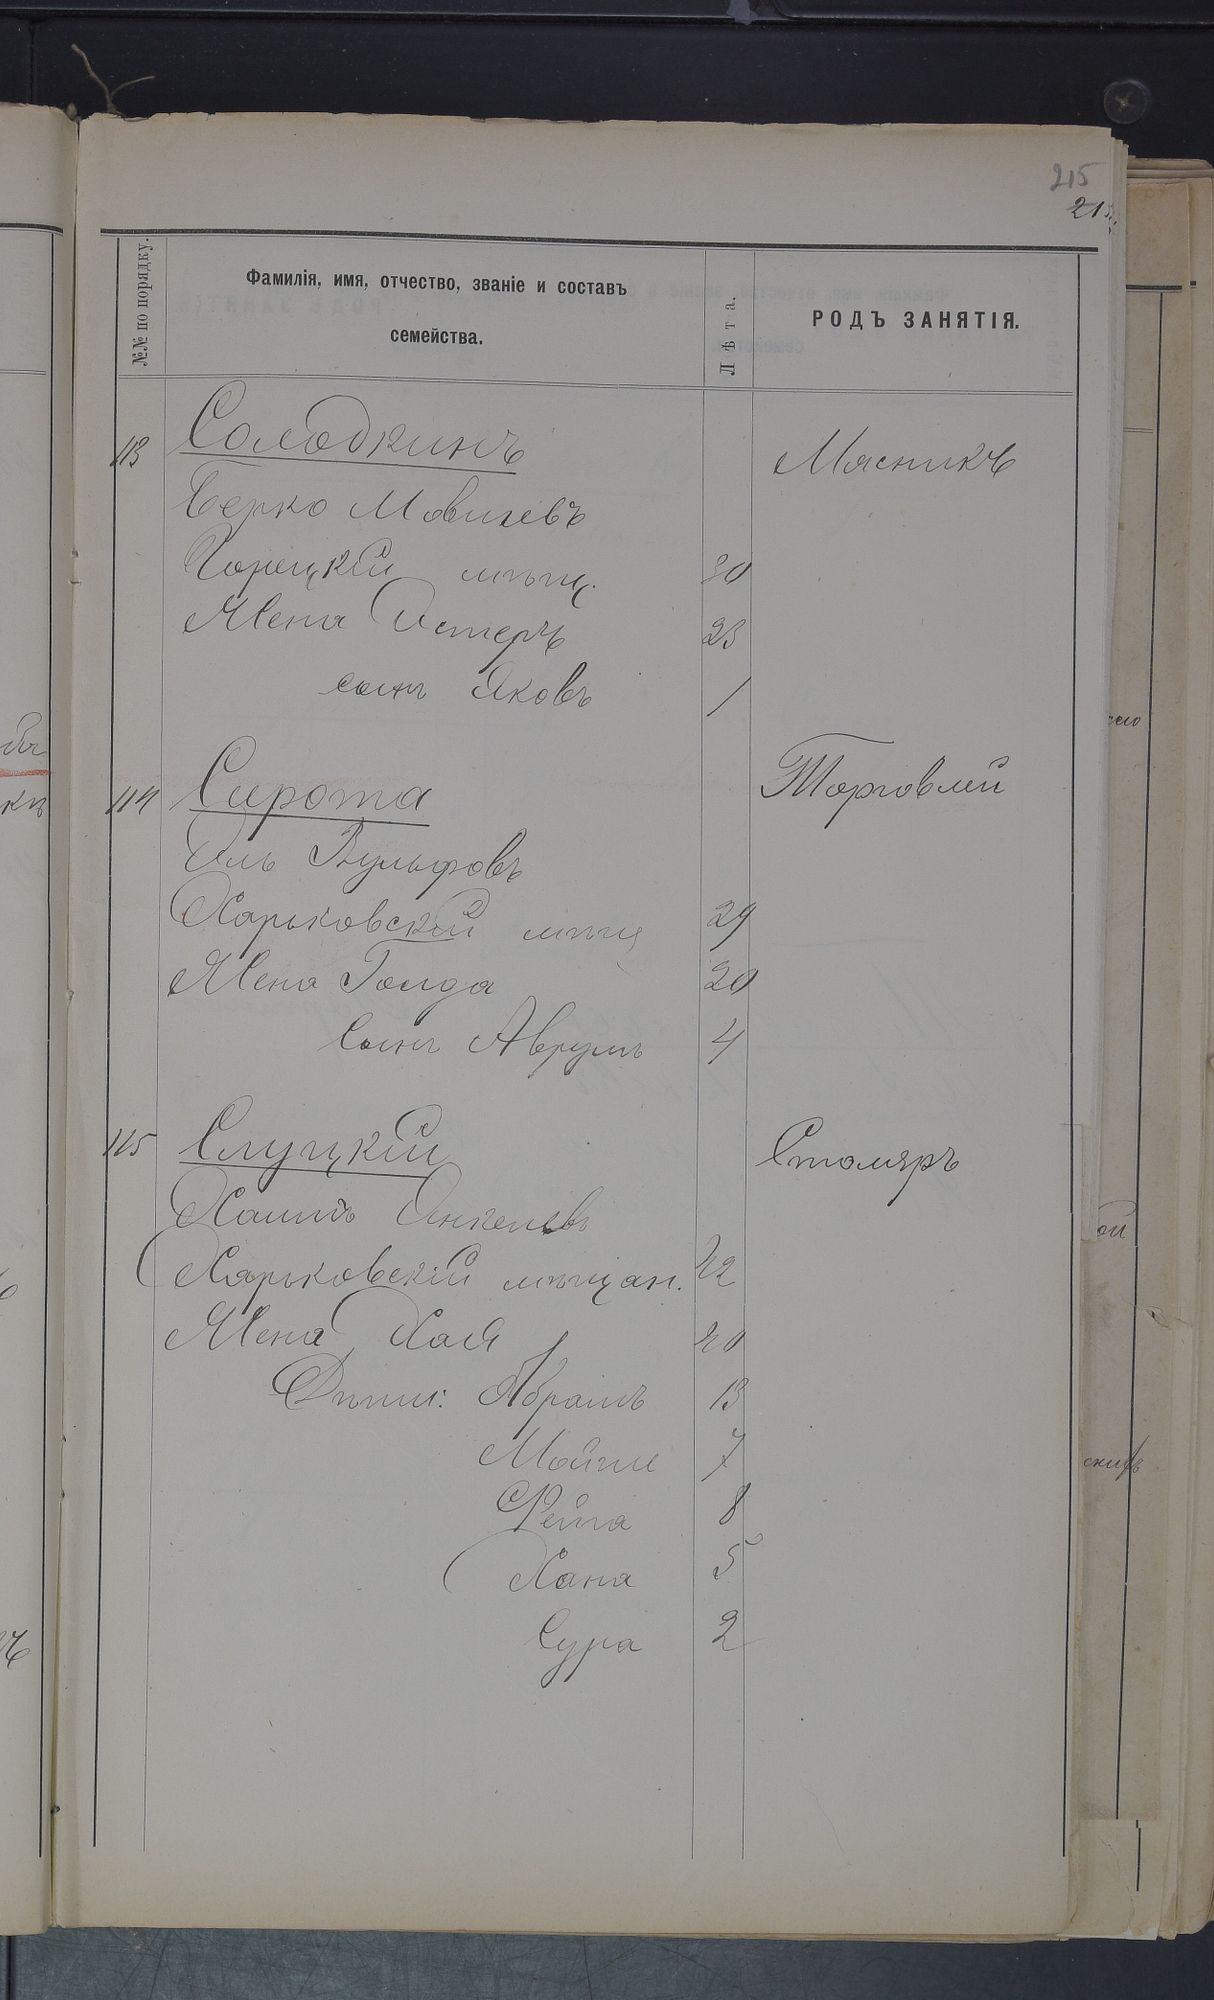 215
№№ по порядку.
Фамилія, имя, отчество, званіе и составъ
семейства.
Лѣта.
РОДЪ ЗАНЯТІЯ.
113 Солодкинъ Мясникъ
Берко Мовшевъ
Горецкій мѣщ. 30
Жена Эстеръ 23
сынъ Яковъ 1
114 Сирота Торговлей
Вульфовъ
Харьковскій мѣщ 29
Жена Голда 20
Сынъ Аврумъ 4
115 Слуцкій Столяръ
Хаимъ Янкелевъ
Харьковскій мѣщан.
Жена Хая
Дѣти: Абрамъ 13
Мойше 7
8
Хана 5
Сура 2